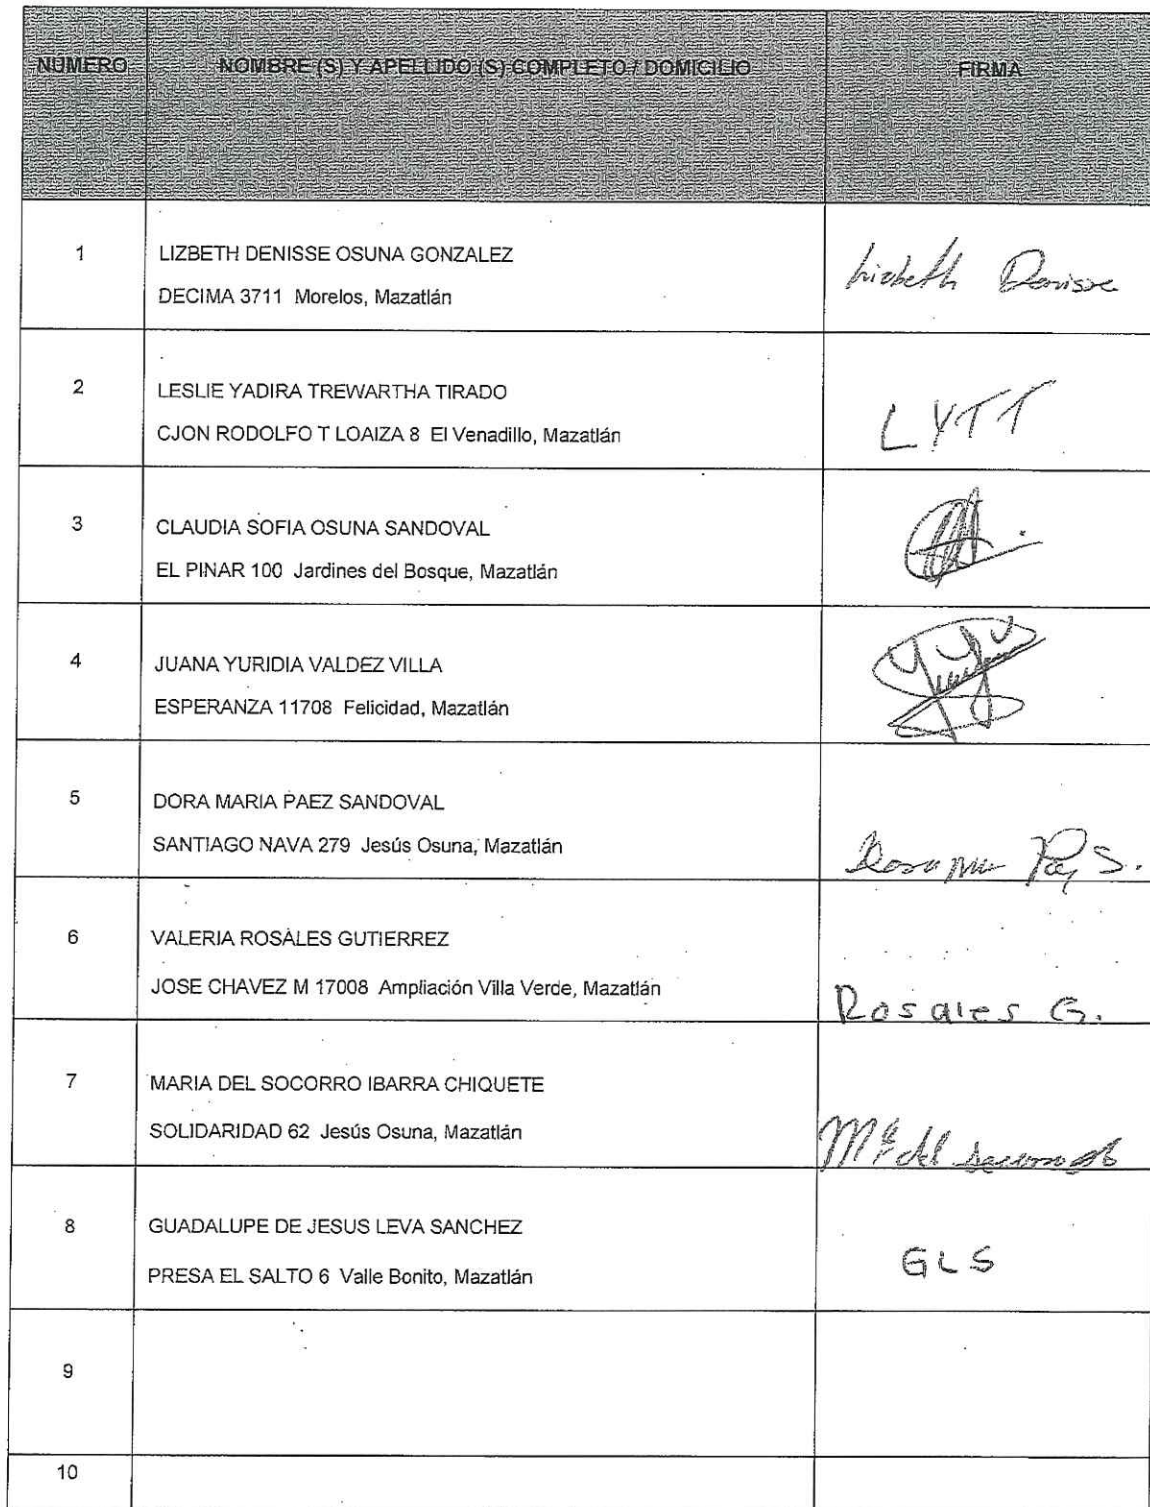 NUMERO NOMBRE (S) Y APELLIDO (S) COMPLETO / DOMICILIO FIRMA
1 LIZBETH DENISSE OSUNA GONZALEZ
DECIMA 3711 Morelos, Mazatlán
Lizbeth Denisse
2 LESLIE YADIRA TREWARTHA TIRADO
CJON RODOLFO T LOAIZA 8 El Venadillo, Mazatlán
LYTT
3 CLAUDIA SOFIA OSUNA SANDOVAL
EL PINAR 100 Jardines del Bosque, Mazatlán
4 JUANA YURIDIA VALDEZ VILLA
ESPERANZA 11708 Felicidad, Mazatlán
5 DORA MARIA PAEZ SANDOVAL
SANTIAGO NAVA 279 Jesús Osuna, Mazatlán
S.
6 VALERIA ROSALES GUTIERREZ
JOSE CHAVEZ M 17008 Ampliación Villa Verde, Mazatlán
Rosales G.
7 MARIA DEL SOCORRO IBARRA CHIQUETE
SOLIDARIDAD 62 Jesús Osuna, Mazatlán
Ma del
8 GUADALUPE DE JESUS LEVA SANCHEZ
PRESA EL SALTO 6 Valle Bonito, Mazatlán
GLS
9
10